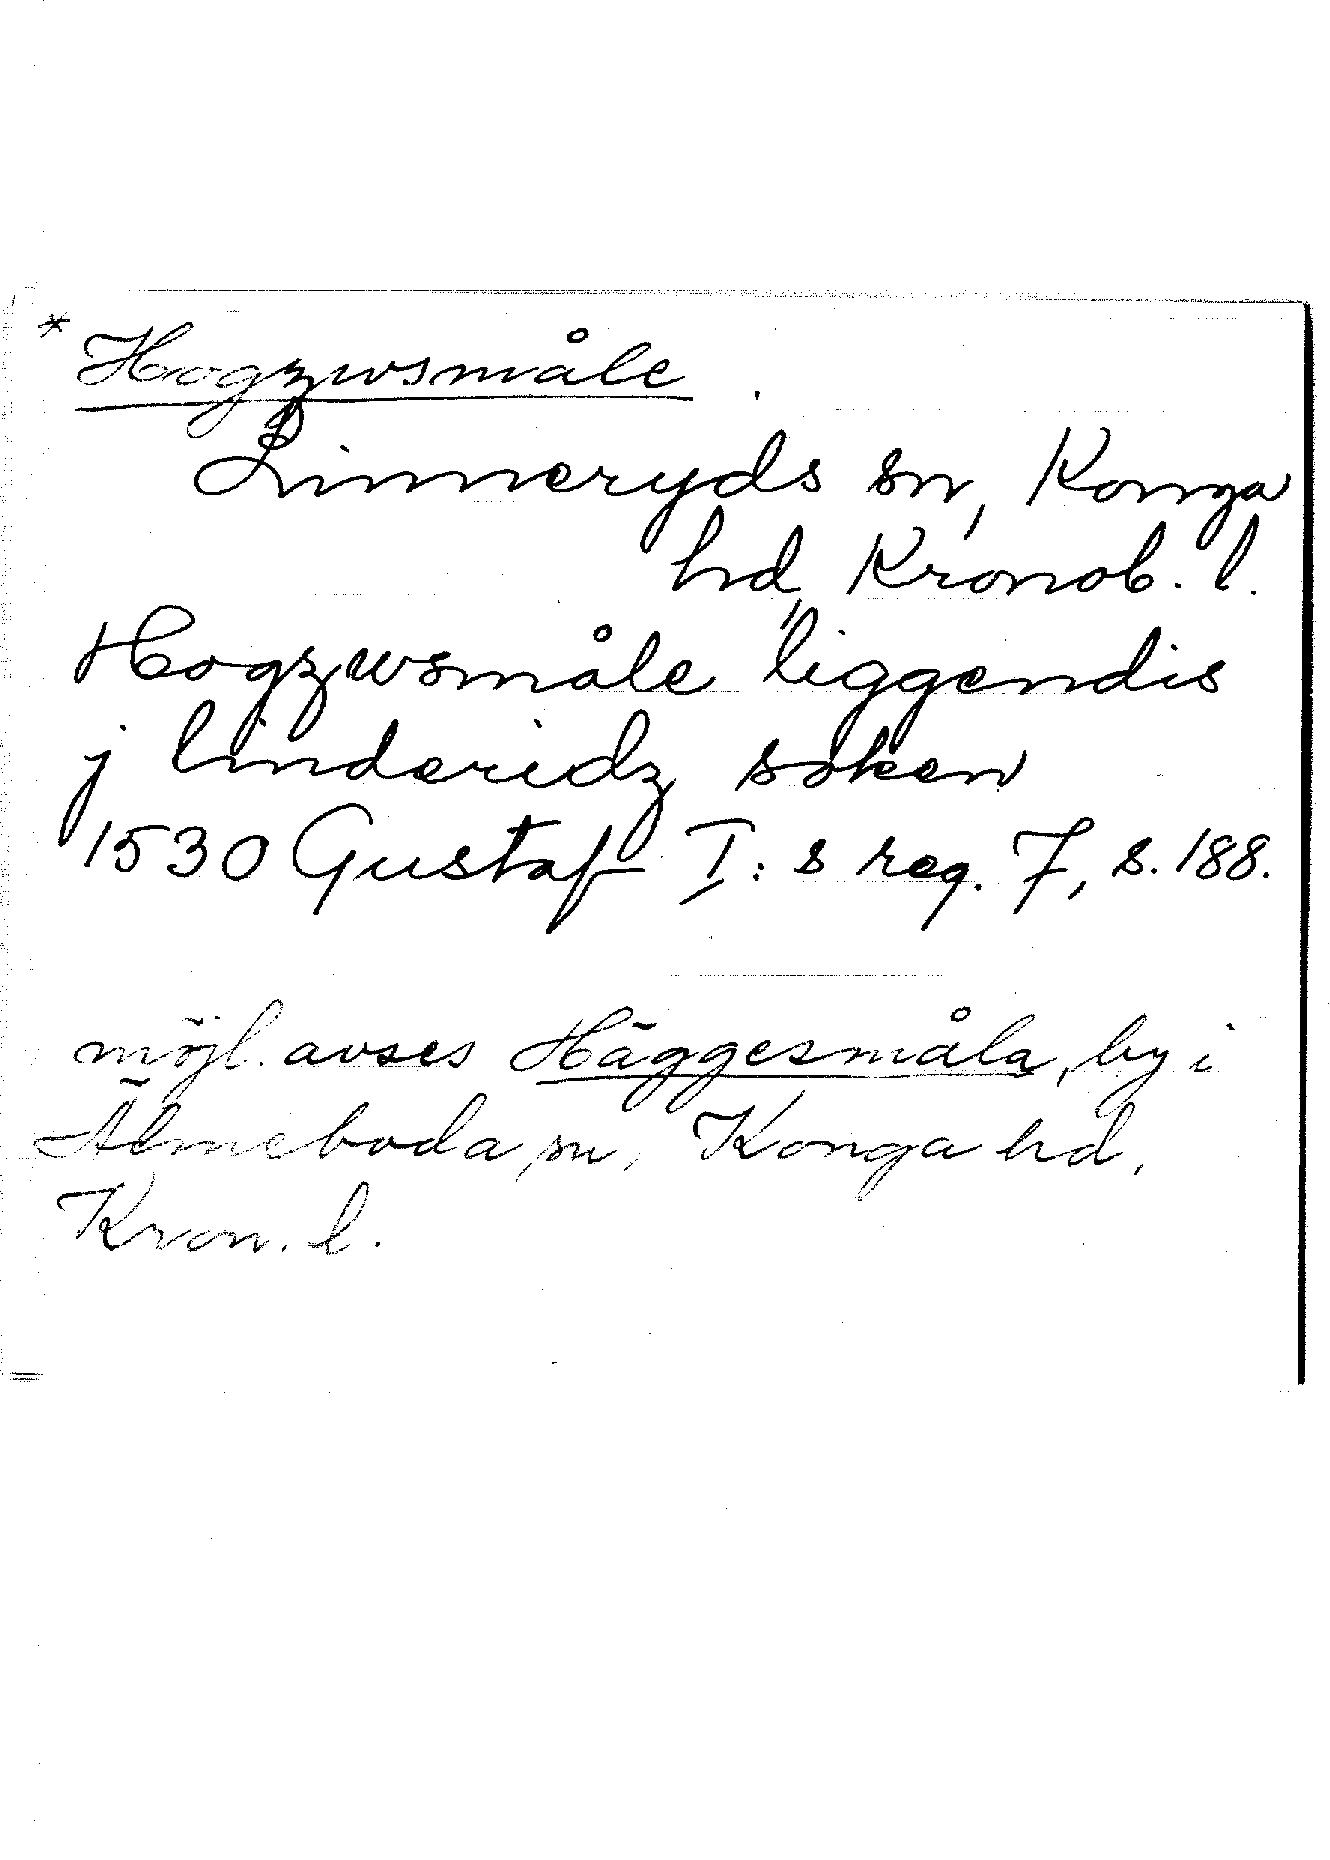 * Hogzwsmåle
Linneryds sn, Konga
hd, Kronob. l.
Hogzwsmåle liggendis
j linderidz soken
1530 Gustaf I: s reg. 7, s. 188.
möjl. avses Häggesmåla, by i
Älmeboda sn, Konga hd,
Kron. l.